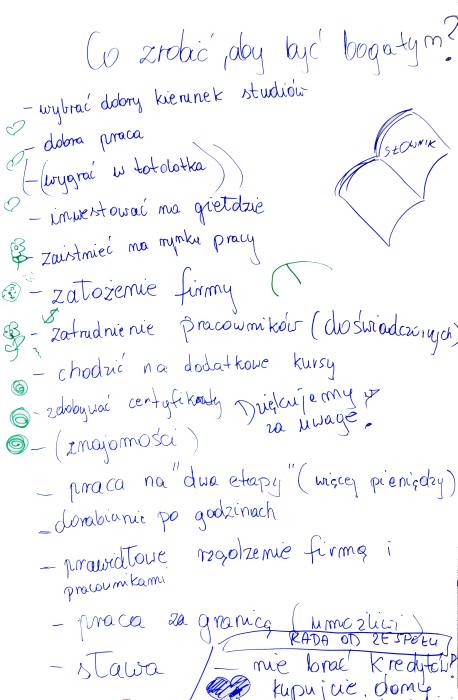 Co zrobić, aby być bogatym?
- wybrać dobry kierunek studiów
- dobra praca
(-(wygrać w totolotka))
SŁOWNIK
- inwestować na giełdzie
- zaistnieć na rynku pracy
- założenie firmy
- zatrudnienie pracowników (doświadczonych)
- chodzić na dodatkowe kursy
- zdobywać certyfikaty
Dziękujemy
za uwagę!
- (znajomości)
- praca na "dwa etapy" (więcej pieniędzy)
- dorabianie po godzinach
- prawidłowe rządzenie firmą i
pracownikami
- praca za granicą (
RADA OD ZESPOŁU
- sława
- nie brać kredytów
kupujcie domy